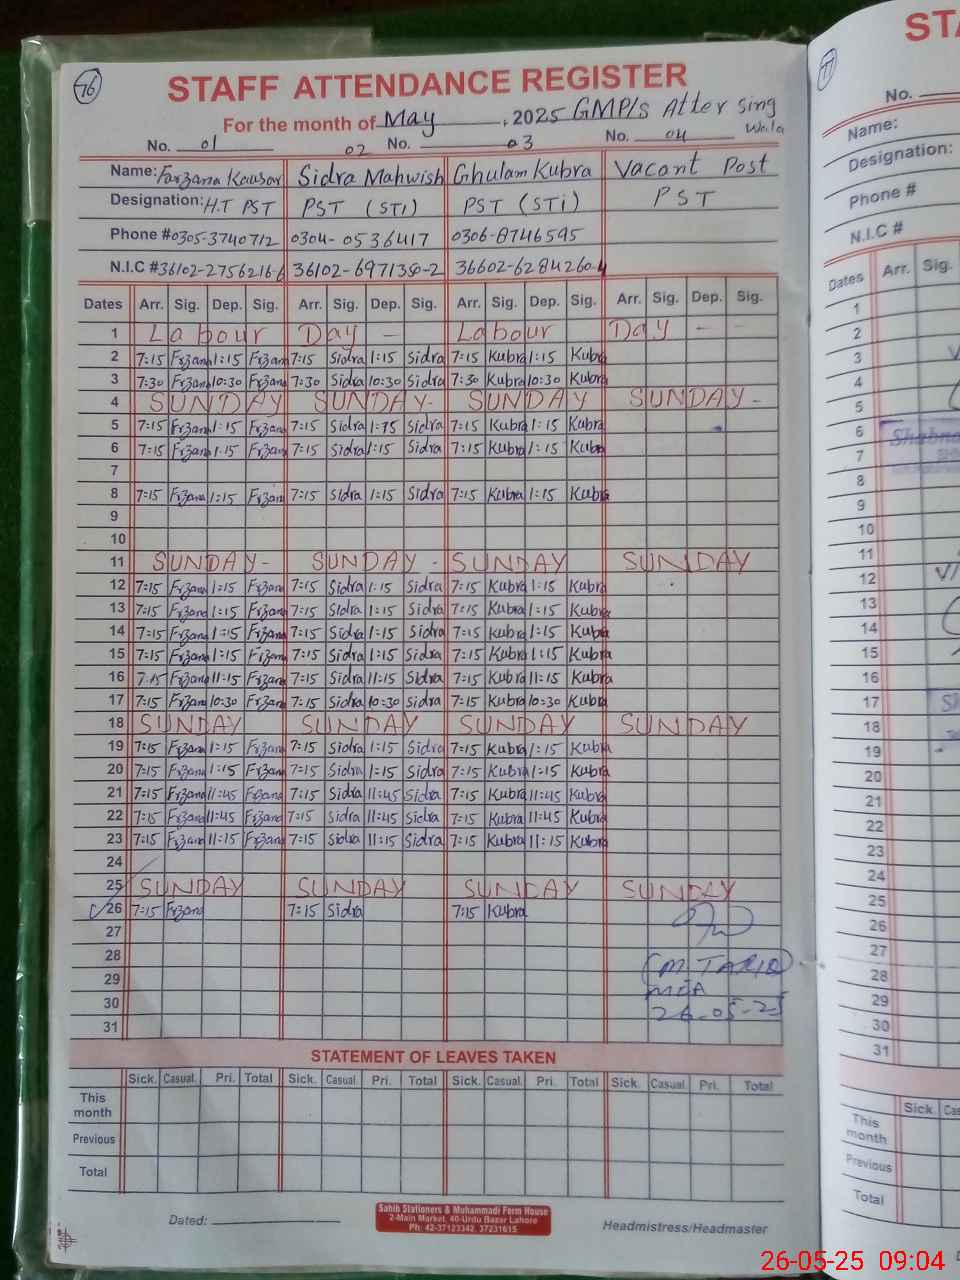 76
STAFF ATTENDANCE REGISTER
For the month of May, 2025 GMP/S Atter Sing Wala
No. 01 02 No. 03 No. 04
Name: Farzana Kausar Sidra Mahwish Ghulam Kubra Vacant Post
Designation: H.T PST PST (STI) PST (STI) PST
Phone # 0305-3740712 0304-0536417 0306-8746595
N.I.C # 36102-2756216-6 36102-697138-2 36602-6284260-4
Dates Arr. Sig. Dep. Sig. Arr. Sig. Dep. Sig. Arr. Sig. Dep. Sig. Arr. Sig. Dep. Sig.
1 Labour Day - Labour Day - -
2 7:15 Frzana 1:15 Frzana 7:15 Sidra 1:15 Sidra 7:15 Kubra 1:15 Kubra
3 7:30 Frzana 10:30 Frzana 7:30 Sidra 10:30 Sidra 7:30 Kubra 10:30 Kubra
4 SUNDAY SUNDAY- SUNDAY SUNDAY-
5 7:15 Frzana 1:15 Frzana 7:15 Sidra 1:15 Sidra 7:15 Kubra 1:15 Kubra
6 7:15 Frzana 1:15 Frzana 7:15 Sidra 1:15 Sidra 7:15 Kubra 1:15 Kubra
7
8 7:15 Frzana 1:15 Frzana 7:15 Sidra 1:15 Sidra 7:15 Kubra 1:15 Kubra
9
10
11 SUNDAY- SUNDAY- SUNDAY SUNDAY
12 7:15 Frzana 1:15 Frzana 7:15 Sidra 1:15 Sidra 7:15 Kubra 1:15 Kubra
13 7:15 Frzana 1:15 Frzana 7:15 Sidra 1:15 Sidra 7:15 Kubra 1:15 Kubra
14 7:15 Frzana 1:15 Frzana 7:15 Sidra 1:15 Sidra 7:15 Kubra 1:15 Kubra
15 7:15 Frzana 1:15 Frzana 7:15 Sidra 1:15 Sidra 7:15 Kubra 1:15 Kubra
16 7:15 Frzana 11:15 Frzana 7:15 Sidra 11:15 Sidra 7:15 Kubra 11:15 Kubra
17 7:15 Frzana 10:30 Frzana 7:15 Sidra 10:30 Sidra 7:15 Kubra 10:30 Kubra
18 SUNDAY SUNDAY SUNDAY SUNDAY
19 7:15 Frzana 1:15 Frzana 7:15 Sidra 1:15 Sidra 7:15 Kubra 1:15 Kubra
20 7:15 Frzana 1:15 Frzana 7:15 Sidra 1:15 Sidra 7:15 Kubra 1:15 Kubra
21 7:15 Frzana 11:45 Frzana 7:15 Sidra 11:45 Sidra 7:15 Kubra 11:45 Kubra
22 7:15 Frzana 11:45 Frzana 7:15 Sidra 11:45 Sidra 7:15 Kubra 11:45 Kubra
23 7:15 Frzana 11:15 Frzana 7:15 Sidra 11:15 Sidra 7:15 Kubra 11:15 Kubra
24
25 SUNDAY SUNDAY SUNDAY SUNDAY
26 7:15 Frzana 7:15 Sidra 7:15 Kubra
27
28 (M TARIQ)
29 MEA
30 26-05-25
31
STATEMENT OF LEAVES TAKEN
Sick. Casual. Pri. Total Sick. Casual. Pri. Total Sick. Casual. Pri. Total Sick. Casual. Pri. Total
This month
Previous
Total
Dated:
Sahib Stationers & Muhammadi Form House
2-Main Market, 40-Urdu Bazar Lahore
Ph: 42-37123342, 37231615
Headmistress/Headmaster
77
STA
No.
Name:
Designation:
Phone #
N.I.C #
Dates Arr. Sig.
1
2
3
4
5
6
7
8
9
10
11
12
13
14
15
16
17
18
19
20
21
22
23
24
25
26
27
28
29
30
31
Sick. Cas
This month
Previous
Total
26-05-25 09:04